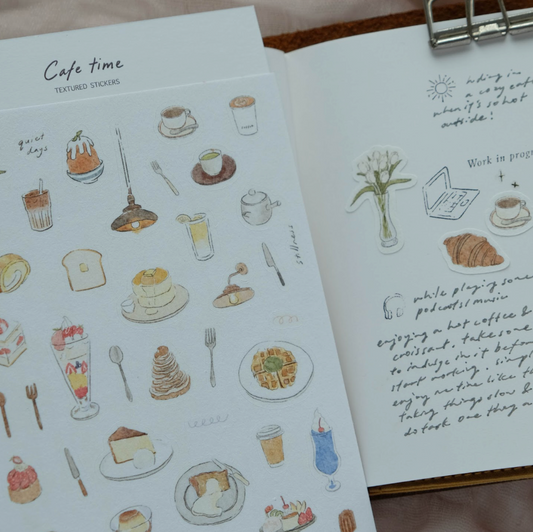 Cafe time
TEXTURED STICKERS
quiet
days
stillness
in a
a cozy cafe
when it's so hot
outside!
Work in progr
while playing some
podcasts/music
enjoying a hot coffee &
croissant. take some
to indulge in it before
start working. simpl
enjoy me time like t
taking things slow &
do task one they a